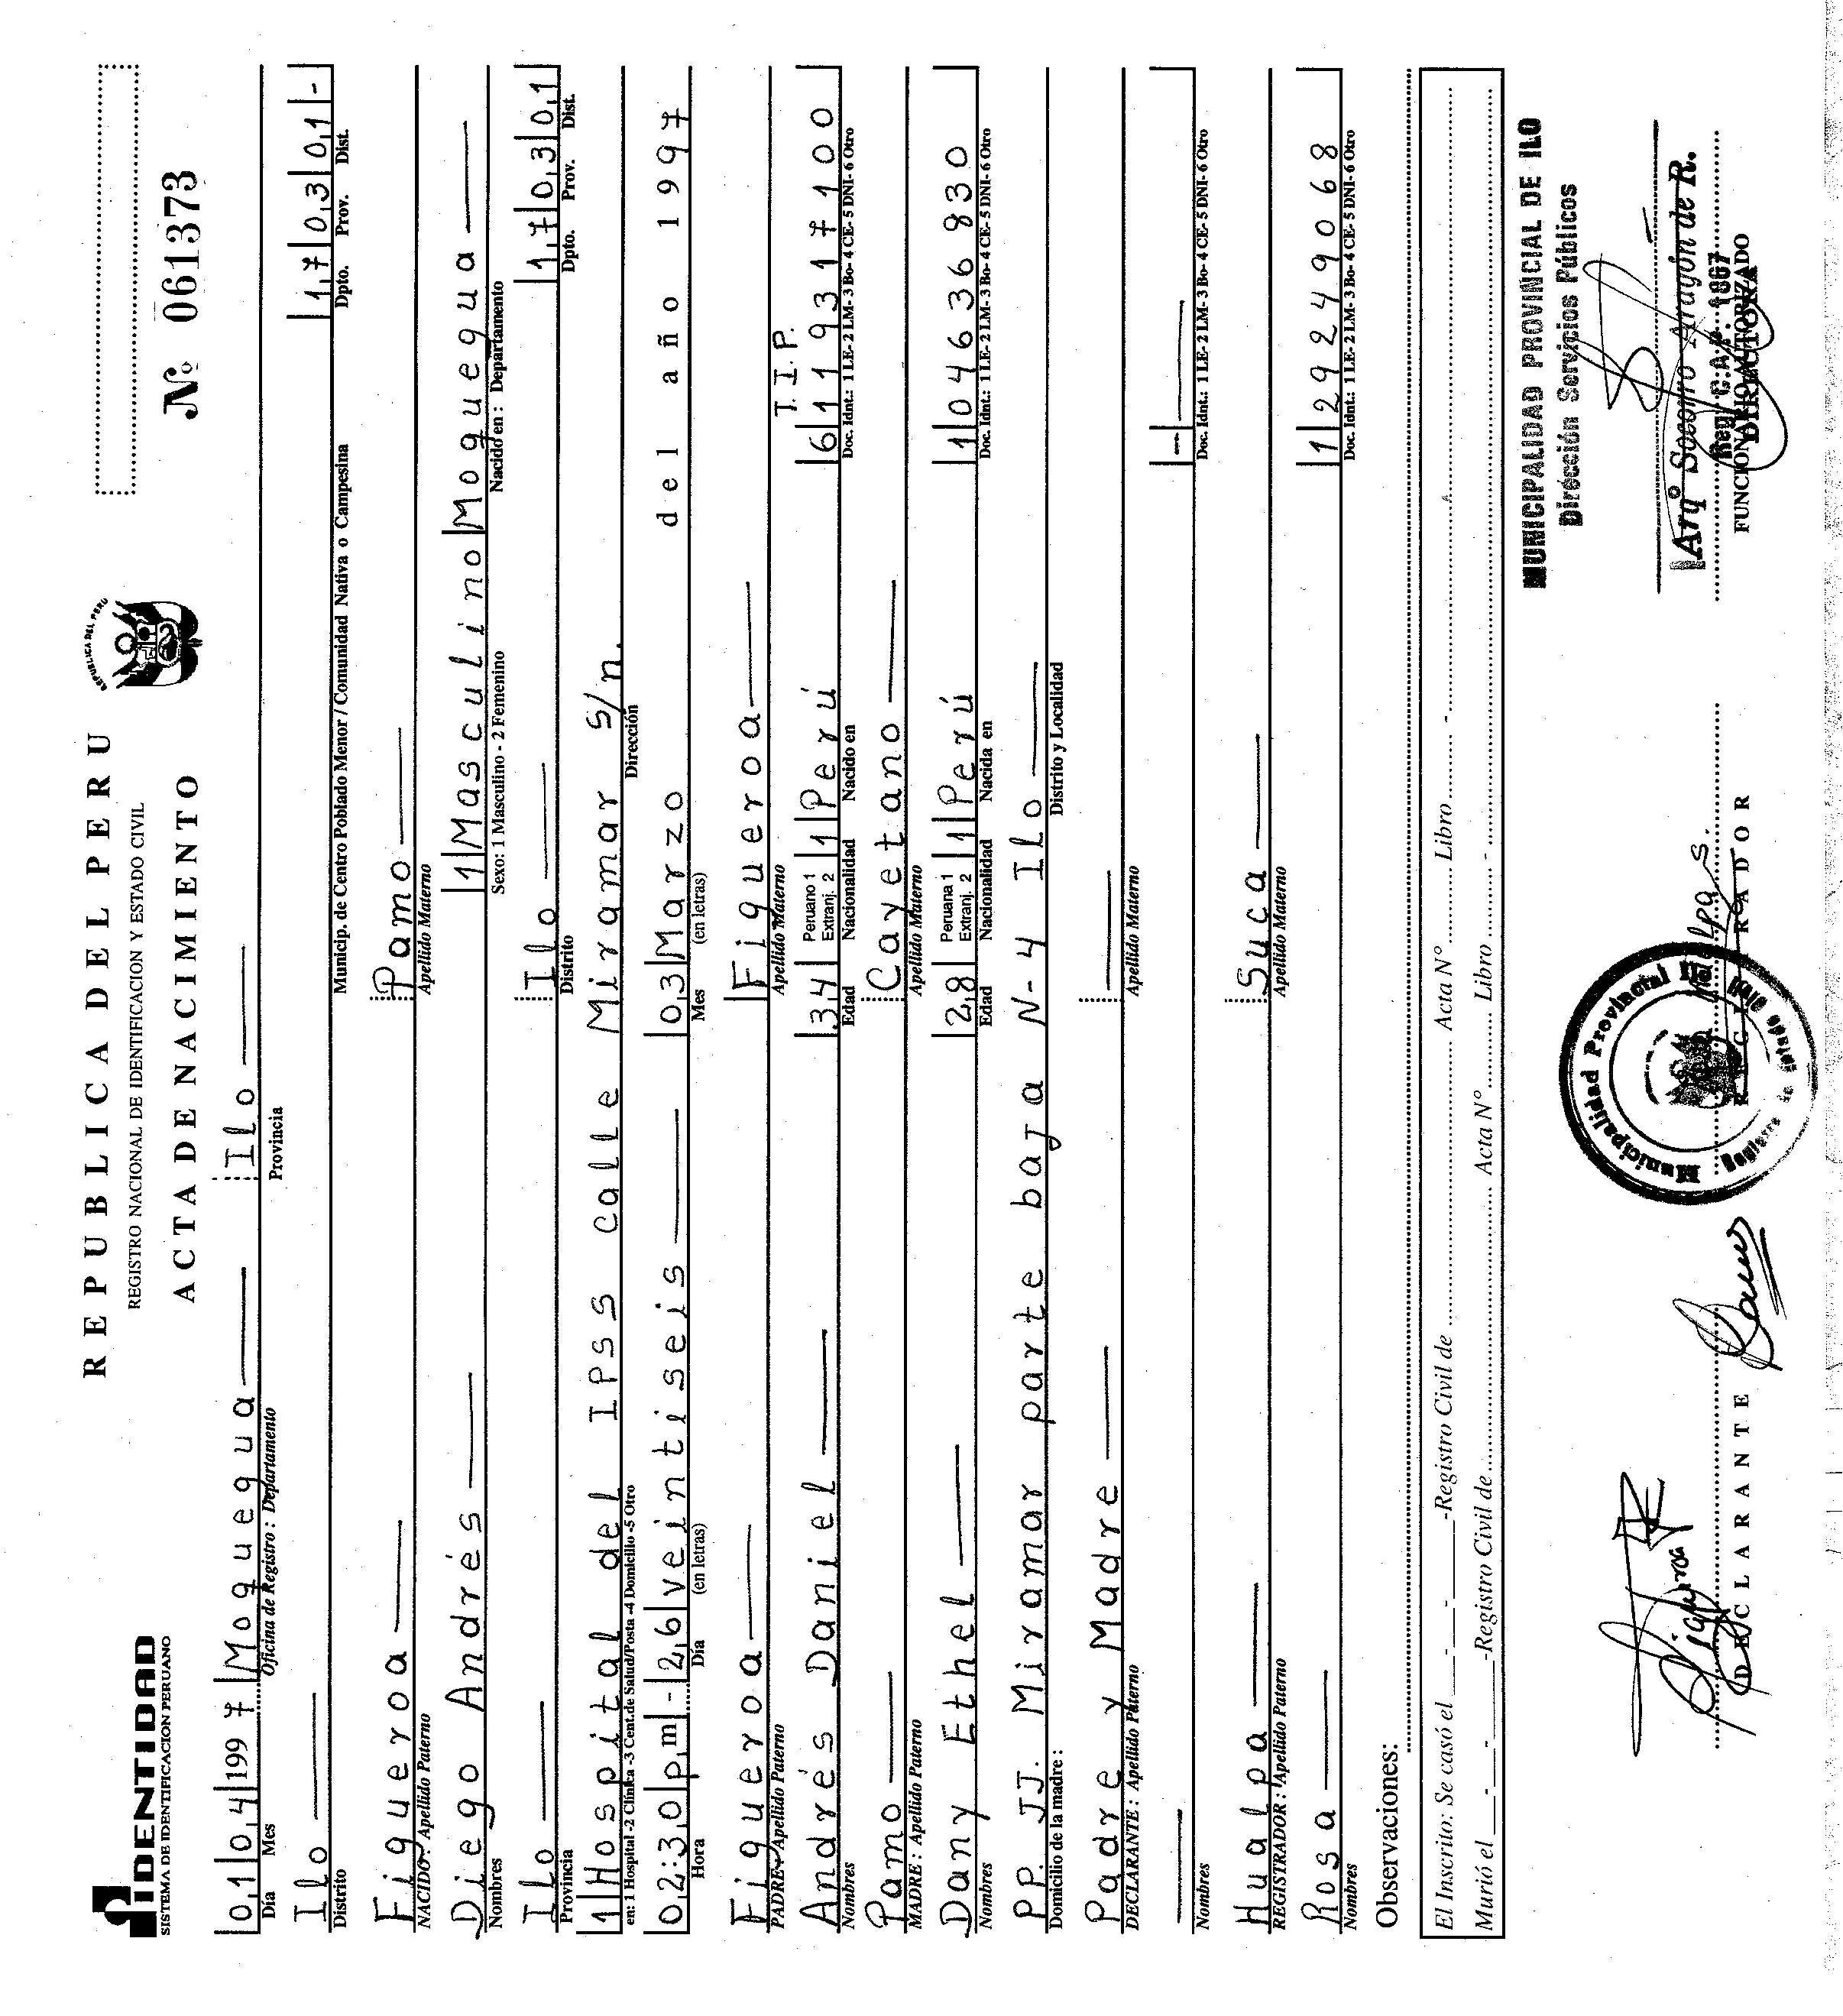 IDENTIDAD
SISTEMA DE IDENTIFICACION PERUANO
REPUBLICA DEL PERU
REPUBLICA DEL PERU
REGISTRO NACIONAL DE IDENTIFICACION Y ESTADO CIVIL
ACTA DE NACIMIENTO
Nº 061373
01 04 1997 Moquegua Ilo
Día Mes Oficina de Registro : Departamento Provincia
Ilo 17 03 01 -
Distrito Municip. de Centro Poblado Menor / Comunidad Nativa o Campesina Dpto. Prov. Dist.
Figueroa Pamo
NACIDO: Apellido Paterno Apellido Materno
Diego Andrés 1 Masculino Moquegua
Nombres Sexo: 1 Masculino - 2 Femenino Nacido en : Departamento
Ilo Ilo 17 03 01
Provincia Distrito Dpto. Prov. Dist.
1 Hospital del IPSS calle Miramar S/n.
en: 1 Hospital -2 Clínica -3 Cent.de Salud/Posta -4 Domicilio -5 Otro Dirección
02:30 pm - 26 veintiseis 03 Marzo del año 1997
Hora Día (en letras) Mes (en letras)
Figueroa Figueroa T. I. P.
PADRE : Apellido Paterno Apellido Materno
Andrés Daniel 34 Peruano 1 Extranj. 2 1 Perú 6 1119317100
Nombres Edad Nacionalidad Nacido en Doc. Idnt.: 1 LE- 2 LM- 3 Bo- 4 CE- 5 DNI- 6 Otro
Pamo Cayetano
MADRE : Apellido Paterno Apellido Materno
Dany Ethel 28 Peruana 1 Extranj. 2 1 Perú 1 04636830
Nombres Edad Nacionalidad Nacida en Doc. Idnt.: 1 LE- 2 LM- 3 Bo- 4 CE- 5 DNI- 6 Otro
PP. JJ. Miramar parte baja N-4 Ilo
Domicilio de la madre : Distrito y Localidad
Padre y Madre
DECLARANTE : Apellido Paterno Apellido Materno
-
Nombres Doc. Idnt.: 1 LE- 2 LM- 3 Bo- 4 CE- 5 DNI- 6 Otro
Hualpa Suca
REGISTRADOR : Apellido Paterno Apellido Materno
Rosa 1 29249068
Nombres Doc. Idnt.: 1 LE- 2 LM- 3 Bo- 4 CE- 5 DNI- 6 Otro
Observaciones:
El Inscrito: Se casó el - - -Registro Civil de Acta Nº Libro -
Murió el - - -Registro Civil de Acta Nº Libro -
MUNICIPALIDAD PROVINCIAL DE ILO
Dirección Servicios Públicos
Figueroa
DECLARANTE
Municipalidad Provincial Ilo
REGISTRADOR
Arqº Socorro Aragón de R.
Reg. C.A.P. 1867
FUNCIONARIO AUTORIZADO
DIRECTORA